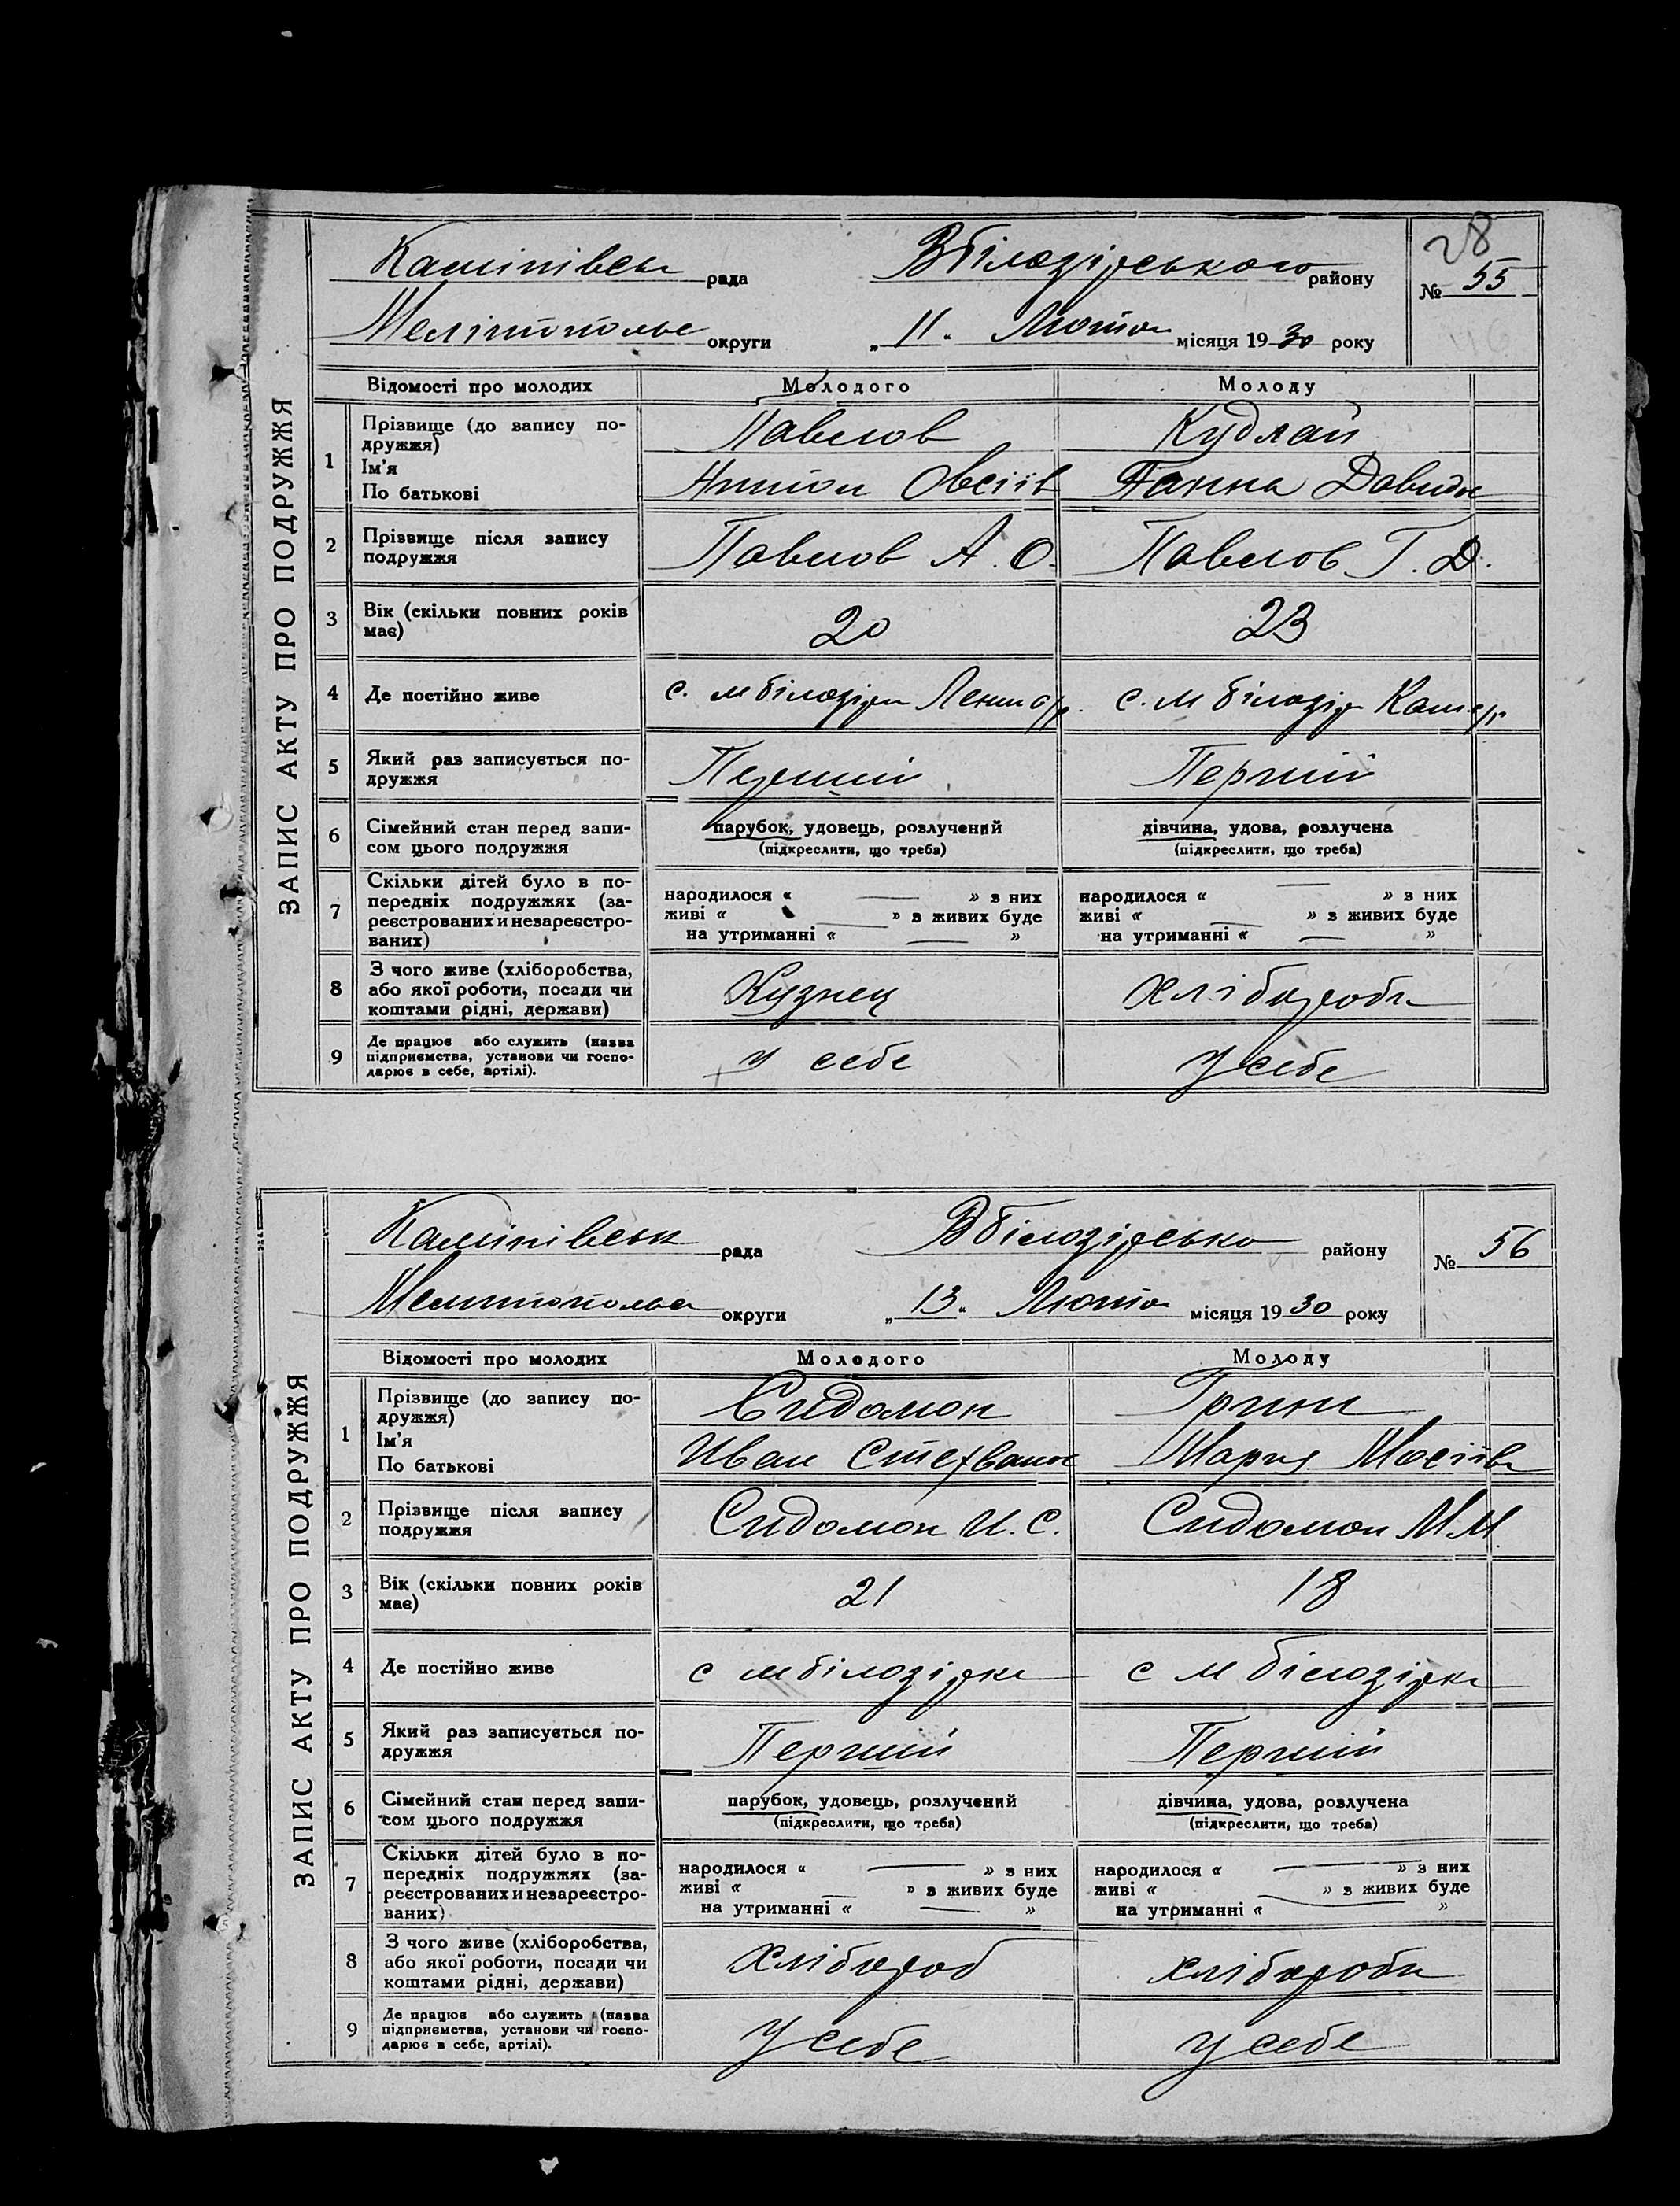 28
Камінівськ рада Вбілозірського району № 55
Мелітополье округи „ 11 “ Лютого місяця 1930 року
ЗАПИС АКТУ ПРО ПОДРУЖЖЯ
Відомості про молодих Молодого Молоду
1 Прізвище (до запису по-
дружжя)
Ім’я
По батькові
Павлов Кудлай
Антон Овсіїв Ганна Давидов
2 Прізвище після запису
подружжя
Павлов А. О. Павлов Г. Д.
3 Вік (скільки повних років
має)
20 23
4 Де постійно живе
с. м білозірка Ленин с/р. с. м білозір Кам с/р
5 Який раз записується по-
дружжя
Перший Перший
6 Сімейний стан перед запи-
сом цього подружжя
парубок, удовець, розлучений дівчина, удова, розлучена
(підкреслити, що треба) (підкреслити, що треба)
7 Скільки дітей було в по-
передніх подружжях (за-
реєстрованих и незареєстро-
ваних)
народилося « — » з них народилося « — » з них
живі « — » з живих буде живі « — » з живих буде
на утриманні « — » на утриманні « — »
8 З чого живе (хліборобства,
або якої роботи, посади чи
коштами рідні, держави)
Кузнец хлібороби
9 Де працює або служить (назва
підприємства, установи чи госпо-
дарює в себе, артілі).
у себе у себе
Камінівськ рада Вбілозірсько району № 56
Мелитополье округи „ 13 “ Лютого місяця 1930 року
ЗАПИС АКТУ ПРО ПОДРУЖЖЯ
Відомості про молодих Молодого Молоду
1 Прізвище (до запису по-
дружжя)
Ім’я
По батькові
Сидомон Грини
Иван Стефванов Мария Мосіівн
2 Прізвище після запису
подружжя
Сидомон И. С. Сидомон М. М.
3 Вік (скільки повних років
має)
21 18
4 Де постійно живе
с м білозірка с м білозірка
5 Який раз записується по-
дружжя
Перший Перший
6 Сімейний стан перед запи-
сом цього подружжя
парубок, удовець, розлучений дівчина, удова, розлучена
(підкреслити, що треба) (підкреслити, що треба)
7 Скільки дітей було в по-
передніх подружжях (за-
реєстрованих и незареєстро-
ваних)
народилося « — » з них народилося « — » з них
живі « — » з живих буде живі « — » з живих буде
на утриманні « — » на утриманні « — »
8 З чого живе (хліборобства,
або якої роботи, посади чи
коштами рідні, держави)
хлібороб хлібороби
9 Де працює або служить (назва
підприємства, установи чи госпо-
дарює в себе, артілі).
у себе у себе